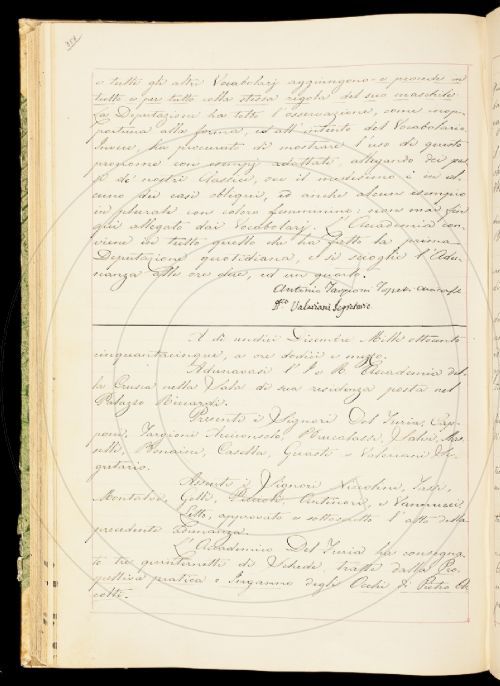 358
e tutti gli altri Vocabolarj aggiungono e procede in
tutto e per tutto colla stessa regola del suo maschile.
La Deputazione ha tolto l'osservazione, come inop-
portuna alla forma, ed all'intento del Vocabolario.
Invece, ha procurato di mostrare l'uso di questo
pronome con esempj adattati, allegando dei pas-
si de' nostri Classici, ove il medesimo è in al-
cuno dei casi obliqui, ed anche alcun esempio
in plurale con coloro femminino: non mai fin
qui allegato dai Vocabolarj. L'Accademia con-
viene in tutto quello che ha fatto la prima
Deputazione quotidiana, e si scioglie l'Adu-
nanza alle ore due, ed un quarto.
Antonio Targioni Tozzetti
Valeriani Segretario
A dì undici Dicembre Mille ottocento
cinquantacinque, a ore dodici e mezzo.
Adunavasi l'I. e R. Accademia del-
la Crusca nella Sala di sua residenza posta nel
Palazzo Riccardi.
Presenti i Signori Del Furia, Cap-
poni, Targioni Arciconsolo, Bruscalassi,
Bonaini, Casella, Guasti e Valeriani Se-
gretario.
Assenti i Signori
Montalvi, Gotti, Antinori, e Vannucci.
Letto, approvato e sottoscritto l'atto della
precedente Adunanza.
L'Accademico Del Furia ha consegna-
to tre quinternetti di Schede, tratte dalla Pro-
spettiva pratica e Inganno degli Occhi di Pietro Ac-
colti.